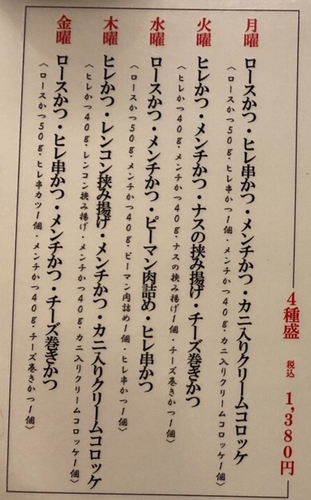 4種盛 税込 1,380円
月曜 ロースかつ・ヒレ串かつ・メンチかつ・カニ入りクリームコロッケ
〈ロースかつ50g・ヒレ串かつ1個・メンチかつ40g・カニ入りクリームコロッケ1個〉
火曜 ヒレかつ・メンチかつ・ナスの挟み揚げ・チーズ巻きかつ
〈ヒレかつ40g・メンチかつ40g・ナスの挟み揚げ1個・チーズ巻きかつ1個〉
水曜 ロースかつ・メンチかつ・ピーマン肉詰め・ヒレ串かつ
〈ロースかつ50g・メンチかつ40g・ピーマン肉詰め1個・ヒレ串かつ1個〉
木曜 ヒレかつ・レンコン挟み揚げ・メンチかつ・カニ入りクリームコロッケ
〈ヒレかつ40g・レンコン挟み揚げ・メンチかつ40g・カニ入りクリームコロッケ1個〉
金曜 ロースかつ・ヒレ串かつ・メンチかつ・チーズ巻きかつ
〈ロースかつ50g・ヒレ串カツ1個・メンチかつ40g・チーズ巻きかつ1個〉